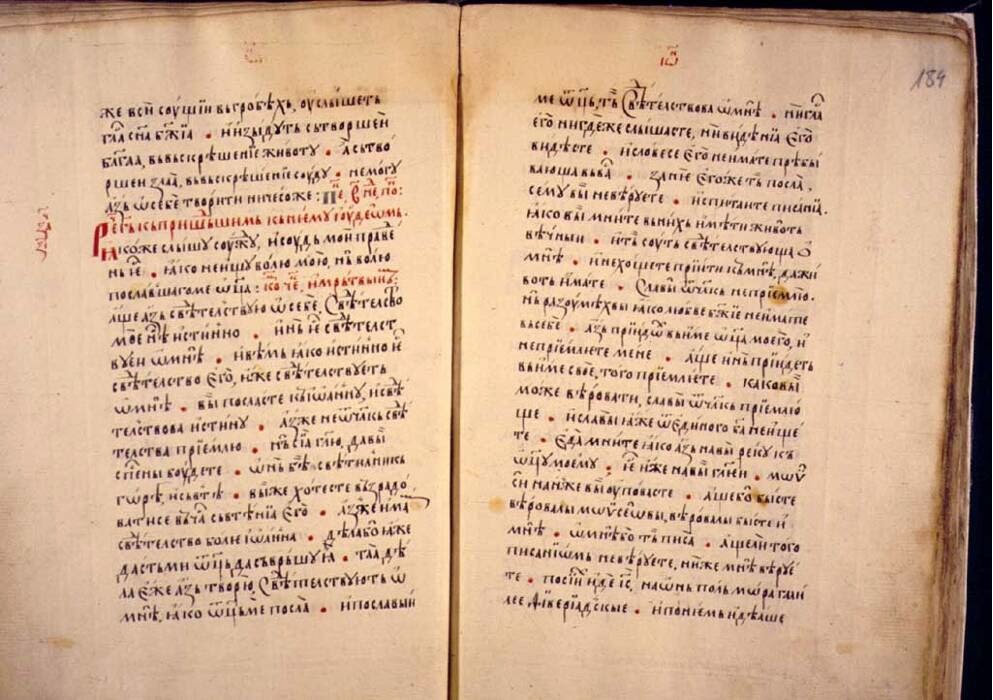 же всѝ соущїи вьгробѣхь, оуслышеть
гла́ сн҃а бж҃їа • и҆и҆зыдуть сьтворшеи
бл҃гаа, вьвьскрѣшенїе животу • а҆сьтво
ршеи злаа, вьвьскрѣшенїе соуду • немогу
а҆зь ѡ҆себѣ творити ничесоже :
Рече гь кьпришьшимь кьнѥму їоудеѡмь.
ꙗ҆коже слышу соужу, и҆соудь мои праве
нь ѥ҆ • ꙗ҆ко неищу волю мою, нь волю
пославшагоме ѿц҃а :
а҆ще а҆зь свѣтелствую ѡ҆себѣ, свѣтелство
мое нѣ и҆стинно • и҆нь ѥ҆ свѣтелст
вуеи ѡ҆мнѣ • и҆вѣмь ꙗ҆ко и҆стинно ѥ҆
свѣтелство ѥ҆го, ѥ҆же свѣтелствуеть
ѡ҆мнѣ • вы҆ посласте кьїѡ҆анну, и҆свѣ
телствова и҆стину • а҆зже неѿчл҃кь свѣ
телства прїемлю • нь сїа гл҃ю, давы҆
сп҃сены боудете • ѡ҆нь бѣ свѣтилникь
горѣ, и҆свьте • выже хотесте вьзрадо
ватисе вьча́ сьвтѣнїа ѥ҆го • а҆зже и҆ма
свѣтелство болѥ їѡ҆анна • дѣлабо ꙗ҆же
дастьми ѿц҃ь, дасьврьшу ꙗ҆ • таа дѣ
ла ѥ҆же а҆зь творю, свѣтелствують ѡ҆
мнѣ, ꙗ҆ко ѿц҃ьме посла • и҆пославыи
іѡ҃
184
ме ѿц҃ь, ть свѣтелствова ѡ҆мнѣ • нигла́
ѥ҆го нигдеже слышасте, нивидѣнїа ѥ҆го
видѣсте • и҆словесе ѥ҆го неимате прѣбы
вающа вьва́ • зане ѥ҆гоже ть посла,
сему вы҆ невѣруете • и҆спитаите писанїа.
ꙗ҆ко вы҆ мните вьнихь и҆мѣти животь
вѣчныи • и҆ть соуть свѣтелствующа ѡ҆
мнѣ • и҆нехощете прїити кьмнѣ, дажи
воть и҆мате • славы ѿчл҃кь непрїемлю.
нь разоумѣхвы ꙗ҆ко любве бж҃їе неимате
вьсебѣ • а҆зь прїидѡ҆ вьиме ѿц҃а моего, и҆
неприемлѥте мене • а҆ще и҆нь прїидеть
вьиме свое, того прїемлѥте • каковы҆
може вѣровати, славы ѿчл҃кь прїемлю
ще • и҆славы ꙗ҆же ѿе҆диного б҃а неищѥ
те • ѥ҆да мните ꙗ҆ко а҆зь навы реку кь
ѿц҃у моѥму • ѥ҆ и҆же навы гл҃еи • мѡѷ
си наньже вы҆ оуповасте • а҆щебо бысте
вѣровалы мѡѷсеѡвы, вѣровалы бысте и҆
мнѣ • ѡ҆мнѣбо ть писа • а҆щели того
писанїѡмь невѣруете, ниже мнѣ вѣруе
те • посїи иде їс, наѡнь поль мѡра гали
лее тиверїадскые • и҆понѥмь идѣаше